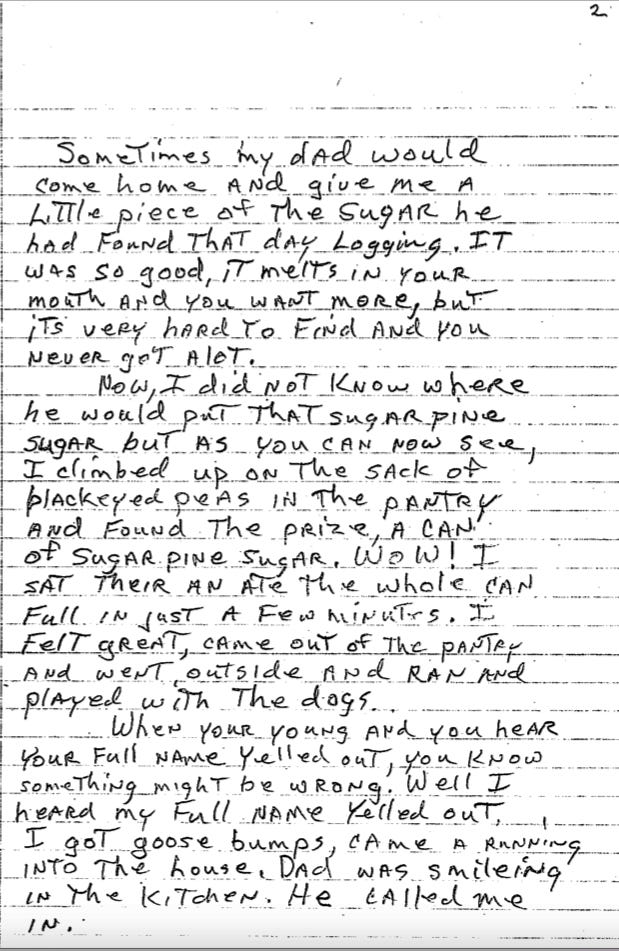 2
Sometimes my dad would
come home and give me a
little piece of the sugar he
had found that day logging. It
was so good, it melts in your
mouth and you want more, but
its very hard to find and you
never got alot.
Now, I did not know where
he would put that sugar pine
sugar but as you can now see,
I climbed up on the sack of
blackeyed peas in the pantry
and found the prize, a can
of sugar pine sugar. Wow! I
sat their an ate the whole can
full in just a few minutes. I
felt great, came out of the pantry
and went outside and ran and
played with the dogs.
When your young and you hear
your full name yelled out, you know
something might be wrong. Well I
heard my full name yelled out,
I got goose bumps, came a running
into the house. Dad was smileing
in the kitchen. He called me
in.